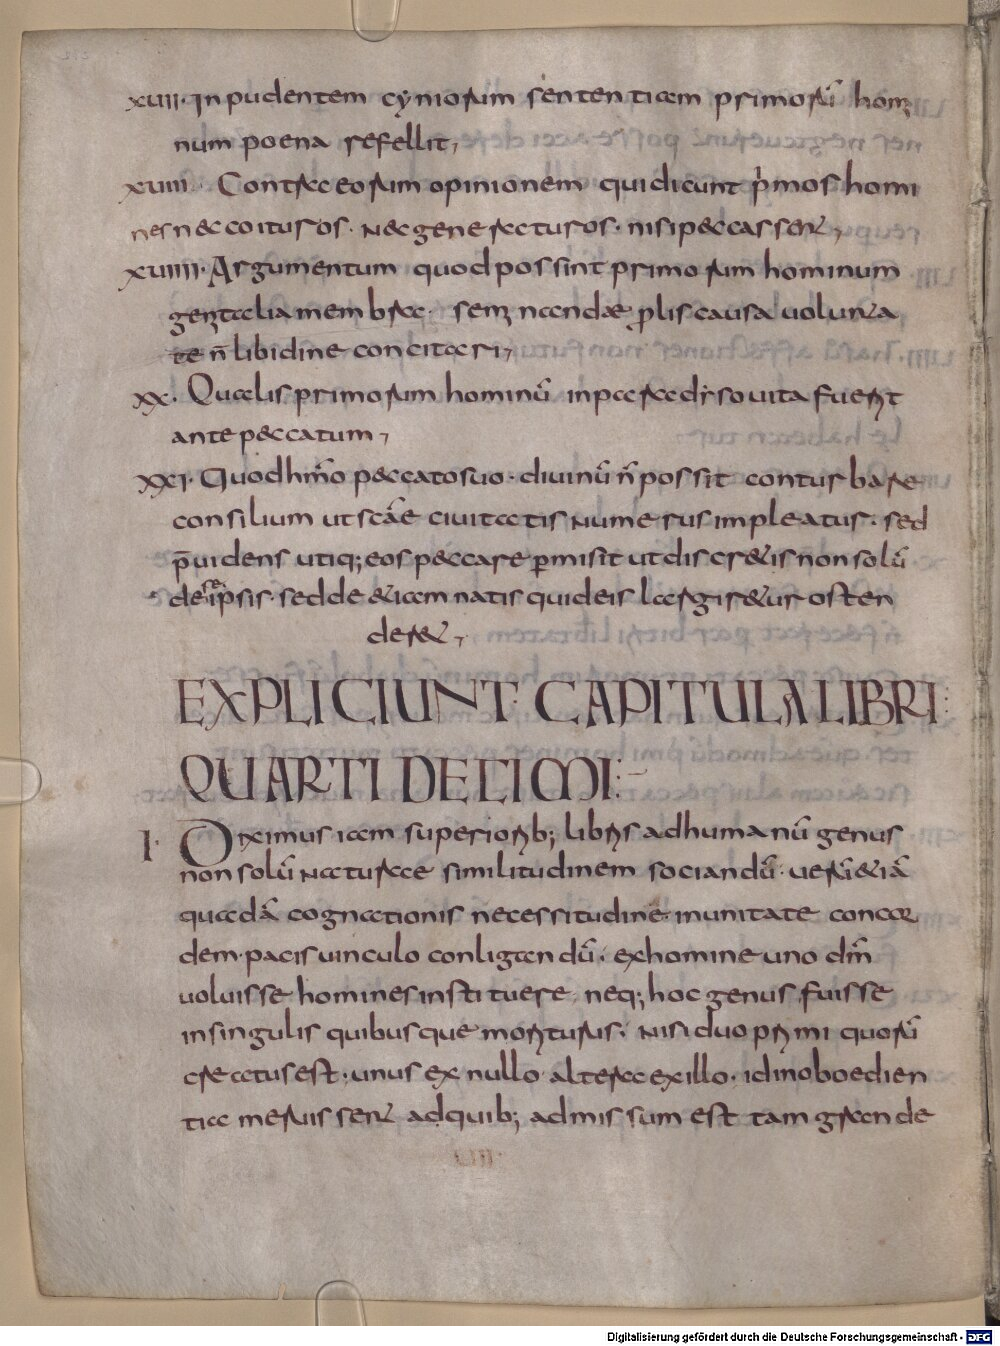 XUIII· Inpudentem cyniorum sententiam primorū homi
num poena refellit,
XUIIII· Contra eorum opinionem qui dicunt primos homi
nes nec coituros· nec generaturos· nisi peccassent,
XUIIIII· Argumentum quod possint primorum hominum
genitalia membra· semi nandae prolis causa uolunta
te n̄ libidine concitari,
XX· Qualis primorum hominū in paradiso uita fuerit
ante peccatum,
XXI· Quod hōmo peccato suo· diuinū n̄ possit conturbare
consilium ut scāe ciuitatis numerus impleatur· sed
p̄uidens utiq; eos peccare p̱misit ut discretis non solū
de se ipsis· sed de etiam natis quid eis largiretur osten
deret,
EXPLICIUNT· CAPITULA LIBRI
QUARTI DECIMI:
I· Diximus iam superiorib; libris ad humanū genus
non solū naturae similitudinem sociandū· uerū & iā
quadā cognationis necessitudine· in unitate concor
dem· pacis uinculo conligandū· ex homine uno dm̄
uoluisse homines instituere, neq; hoc genus fuisse
in singulis quibusque moriturus· nisi duo primi quorū
creatus est· unus ex nullo· altera ex illo· id inoboedien
tia meruissent ad quib; admissum est tam grande
Digitalisierung gefördert durch die Deutsche Forschungsgemeinschaft - DFG